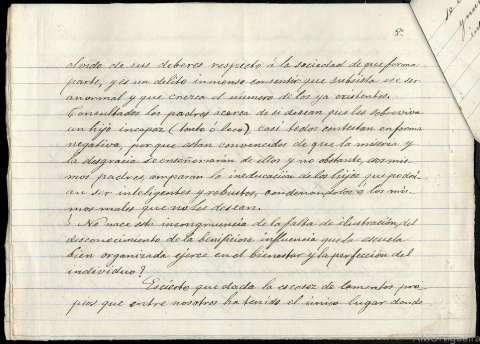 8.
olvido de sus deberes respecto á la sociedad de que forma
parte, y es un delito inmenso consentir que subsista ese ser
anormal y que crezca el número de los ya existentes.
Consultados los padres acerca de si desean que les sobreviva
un hijo incapaz (tonto ó loco), casi todos contestan en forma
negativa, porque están convencidos de que la miseria y
la desgracia se enseñorearán de ellos y no obstante, esos mis-
mos padres amparan la ineducación de los hijos que podrí-
an ser inteligentes y robustos, condenándolos á los mis-
mos males que no les desean.
¿No nace esta incongruencia de la falta de ilustración, del
desconocimiento de la beneficiosa influencia que la escuela
bien organizada ejerce en el bienestar y la perfección del
individuo?
Es cierto que dada la escasez de elementos pro-
pios que entre nosotros ha tenido el único lugar donde